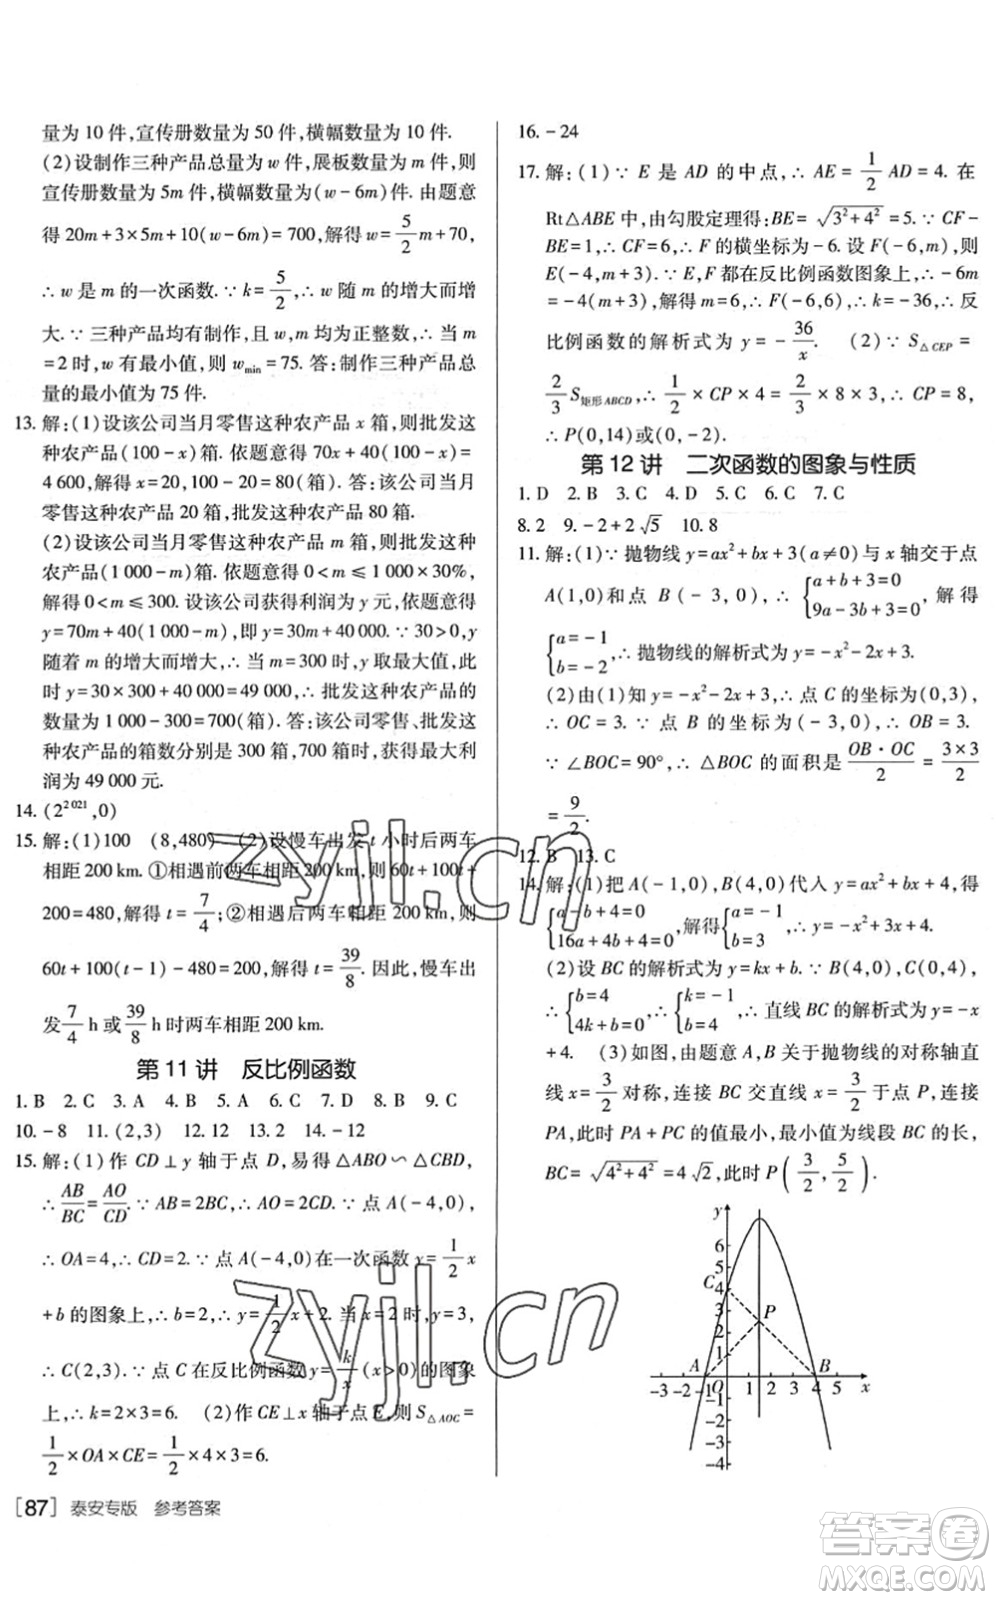 量为 10 件,宣传册数量为 50 件,横幅数量为 10 件.
(2)设制作三种产品总量为 w 件,展板数量 m 件,则
宣传册数量为 5m 件,横幅数量为(w-6m)件. 由题意
得 20m+3×5m+10(w-6m)=700,解得 w=5/2 m+70,
∴ w 是 m 的一次函数.∵ k=5/2,∴ w 随 m 的增大而增
大.∵ 三种产品均有制作,且 w,m 均为正整数,∴ 当 m
=2 时,w 有最小值,则 w_min=75. 答:制作三种产品总
量的最小值为 75 件.
13. 解:(1)设该公司当月零售这种农产品 x 箱,则批发这
种农产品(100-x)箱. 依题意得 70x+40(100-x)=
4 600,解得 x=20,100-20=80(箱). 答:该公司当月
零售这种农产品 20 箱,批发这种农产品 80 箱.
(2)设该公司当月零售这种农产品 m 箱,则批发这种
农产品(1 000-m)箱. 依题意得 0<m≤1 000×30%,
解得 0<m≤300. 设该公司获得利润为 y 元,依题意得
y=70m+40(1 000-m),即 y=30m+40 000.∵ 30>0,y
随着 m 的增大而增大,∴ 当 m=300 时,y 有最大值,此
时 y=30×300+40 000=49 000,∴ 批发这种农产品的
数量为 1 000-300=700(箱). 答:该公司零售、批发这
种农产品的箱数分别是 300 箱,700 箱时,获得最大利
润为 49 000 元.
14. (2^2 021,0)
15. 解:(1)100 (8,480) (2)设慢车出发 t 小时后两车
相距 200 km. ①相遇前两车相距 200 km,则 60t+100t+
200=480,解得 t=7/4;②相遇后两车相距 200 km,则
60t+100(t-1)-480=200,解得 t=39/8. 因此,慢车出
发 7/4 h 或 39/8 h 时两车相距 200 km.
第 11 讲 反比例函数
1. B 2. C 3. A 4. B 5. B 6. D 7. C 8. B 9. C
10. -8 11. (2,3) 12. 12 13. 2 14. -12
15. 解:(1)作 CD⊥y 轴于点 D,易得△ABO∽△CBD,
∴ AB/BC=AO/CD.∵ AB=2BC,∴ AO=2CD.∵ 点 A(-4,0),
∴ OA=4,∴ CD=2.∵ 点 A(-4,0)在一次函数 y=1/2 x
+b 的图象上,∴ b=2,∴ y=1/2 x+2. 当 x=2 时,y=3,
∴ C(2,3).∵ 点 C 在反比例函数 y=k/x (x>0)的图象
上,∴ k=2×3=6. (2)作 CE⊥x 轴于点 E,则 S△AOC=
1/2×OA×CE=1/2×4×3=6.
[87] 泰安专版 参考答案
16. -24
17. 解:(1)∵ E 是 AD 的中点,∴ AE=1/2 AD=4. 在
Rt△ABE 中,由勾股定理得:BE=√(3²+4²)=5.∵ CF-
BE=1,∴ CF=6,∴ F 的横坐标为-6. 设 F(-6,m),则
E(-4,m+3).∵ E,F 都在反比例函数图象上,∴ -6m
=-4(m+3),解得 m=6,∴ F(-6,6),∴ k=-36,∴ 反
比例函数的解析式为 y=-36/x. (2)∵ S△CEP=
2/3 S矩形ABCD,∴ 1/2×CP×4=2/3×8×3,∴ CP=8,
∴ P(0,14)或(0,-2).
第 12 讲 二次函数的图象与性质
1. D 2. B 3. C 4. D 5. C 6. C 7. C
8. 2 9. -2+2√5 10. 8
11. 解:(1)∵ 抛物线 y=ax²+bx+3(a≠0)与 x 轴交于点
A(1,0)和点 B(-3,0),∴ {a+b+3=0 9a-3b+3=0,解得
{a=-1 b=-2,∴ 抛物线的解析式为 y=-x²-2x+3.
(2)由(1)知 y=-x²-2x+3,∴ 点 C 的坐标为(0,3),
∴ OC=3.∵ 点 B 的坐标为(-3,0),∴ OB=3.
∵ ∠BOC=90°,∴ △BOC 的面积是 OB·OC/2=3×3/2
=9/2.
12. B 13. C
14. 解:(1)把 A(-1,0),B(4,0)代入 y=ax²+bx+4,得
{a-b+4=0 16a+4b+4=0,解得{a=-1 b=3,∴ y=-x²+3x+4.
(2)设 BC 的解析式为 y=kx+b.∵ B(4,0),C(0,4),
∴ {b=4 4k+b=0,∴ {k=-1 b=4,∴ 直线 BC 的解析式为 y=-x
+4. (3)如图,由题意 A,B 关于抛物线的对称轴直
线 x=3/2 对称,连接 BC 交直线 x=3/2 于点 P,连接
PA,此时 PA+PC 的值最小,最小值为线段 BC 的长,
BC=√(4²+4²)=4√2,此时 P(3/2,5/2).
y
6
5
C 4
3
2 P
1
A B
-3-2-1 O 1 2 3 4 5 x
-1
-2
-3
-4
zyjl.cn
zyjl.cn
答案圈
MXQE.COM